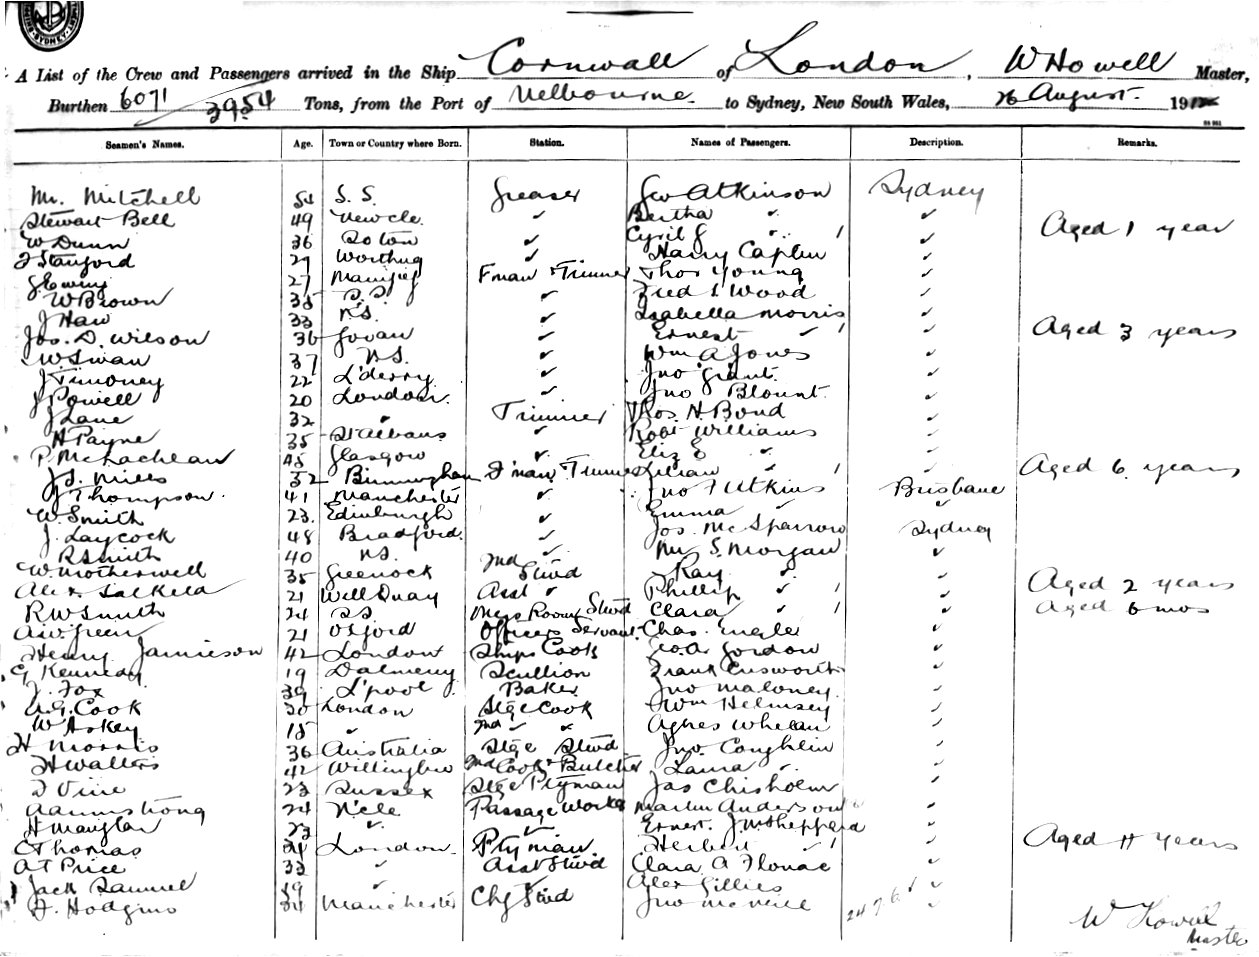 A List of the Crew and Passengers arrived in the Ship Cornwall of London, W Howell Master,
Burthen 6071 3954 Tons, from the Port of Melbourne to Sydney, New South Wales, 26 August 19
Seamen's Names. Age. Town or Country where Born. Station. Names of Passengers. Description. Remarks.
Mr. Mitchell 54 S. S. Greaser Geo Atkinson Sydney
Stewart Bell 49 Newcle. ✓ Bertha " ✓ Aged 1 year
W Dunn 36 Soton ✓ Cyril G " 1 ✓
F Stanford 29 Worthing ✓ Harry Caplin ✓
J Ewing 27 Fman & Trimmer Thos Young ✓
W Brown 35 S. S ✓ Fred S Wood ✓
J Haw 33 N S. ✓ Isabella Morris ✓
Jos. D. Wilson 36 Govan ✓ Ernest ✓ 1 Aged 3 years
W Swan 37 N S. ✓ Wm A Jones ✓
J Timoney 22 L'derry ✓ Jno Grant ✓
J Powell 20 London. ✓ Jno Blount. ✓
J Lane 32 " Trimmer Thos. H. Bond ✓
H Payne 35 St Albans ✓ Robt Williams ✓
P. McLachlan 45 Glasgow ✓ Eliz E ✓
J S. Mills 32 Birmingham F'man Trimmer Lilian ✓ 1 Aged 6 years
J Thompson. 41 Manchester ✓ Jno F Utkins Brisbane
W. Smith 23. Edinburgh ✓ Emma ✓
J. Laycock 48 Bradford. ✓ Jos. McSparrow Sydney
R Smith 40 N S. ✓ Mr S. Morgan ✓
W. Motherwell 35 Greenock 2nd Stwd Ray ✓
Alex. Salkeld 21 Well Quay Asst ✓ Phillip ✓ 1 Aged 2 years
R W Smith 24 S S. Mess Room Stwd Clara ✓ 1 Aged 6 mos
A W Green 21 Oxford Officers Servant Chas. Engler ✓
Henry Jamieson 42 London Ships Cook Geo. A. Gordon ✓
G Kennedy 19 Dalmeny Scullion Frank Cusworth ✓
J. Fox 39 L'pool Baker Jno Maloney ✓
A. G. Cook 30 London Stge Cook Wm Helmsey ✓
W Askey 18 " 2nd ✓ " Agnes Whelan ✓
H Morris 36 Australia Stge Stwd Jno. Coughlin ✓
H Walters 42 Willington 2nd Cook & Butcher Laura ✓
F Vine 23 Sussex Stge Ptyman Jas Chisholm ✓
A Armstrong 24 N'cle Passage Worker Martin Anderson ✓
H Maughan 23 ✓ ✓ Ernest. J. M Sheppard ✓
C Thomas London. Ptyman Herbert ✓ 1 Aged 11 years
A T Price 33 " Asst Stwd Clara A ✓
Jack Samuel 39 ✓ ✓ Alex Gillies ✓
F. Manchester Chf Stwd Jno McNeill ✓
24 7 6 ✓
W Howell
Master